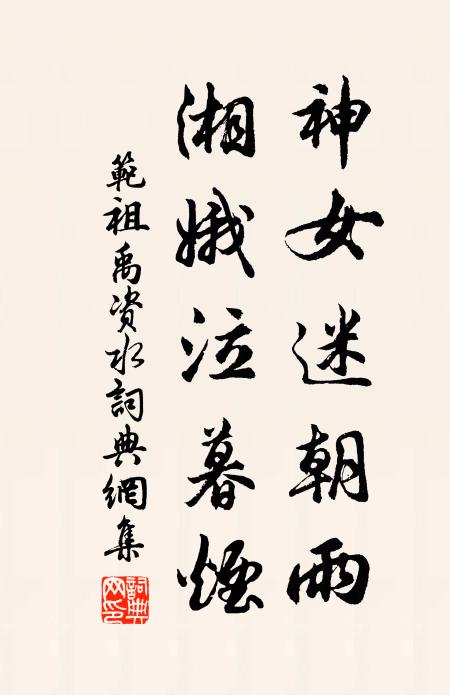 神女迷朝雨
湘娥泣暮煙
範祖禹資水詞典網集
詞典網印